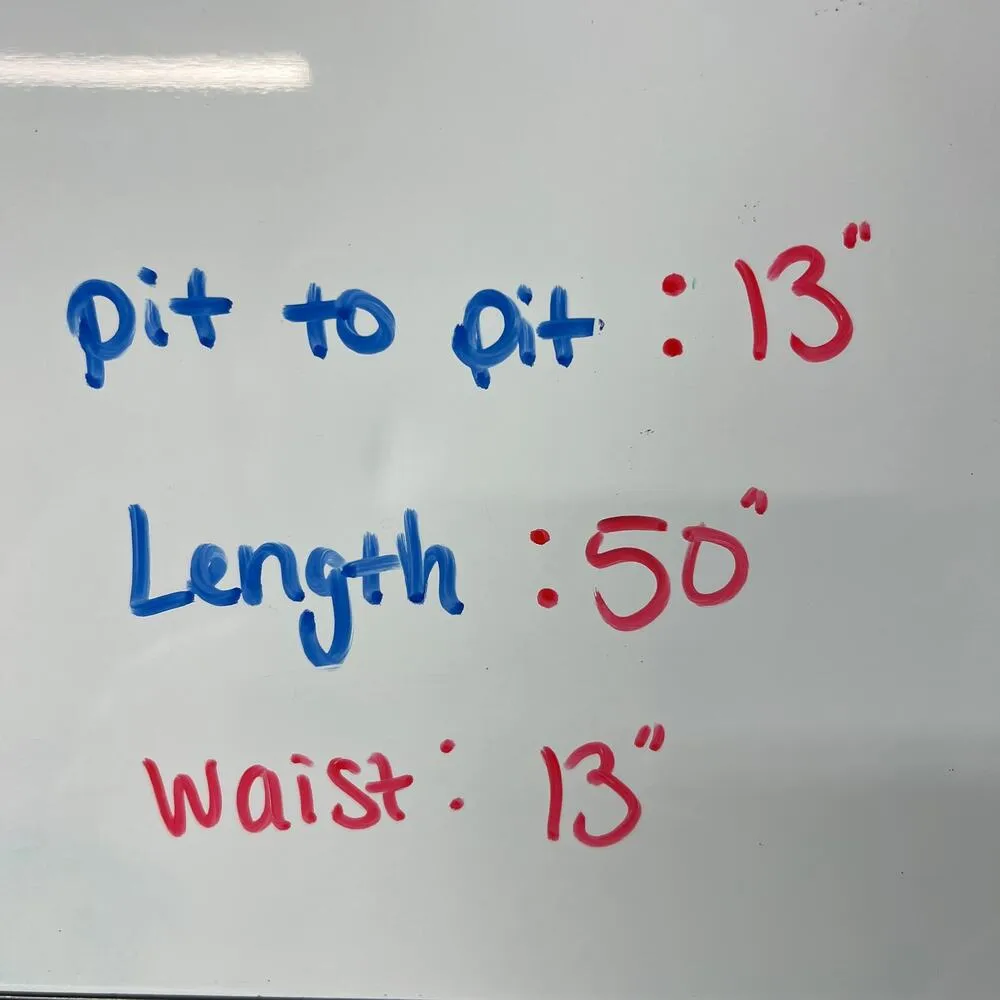 pit to pit : 13"
Length : 50"
waist : 13"